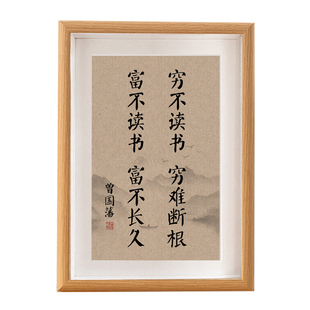 穷不读书 穷难断根
富不读书 富不长久
曾国藩